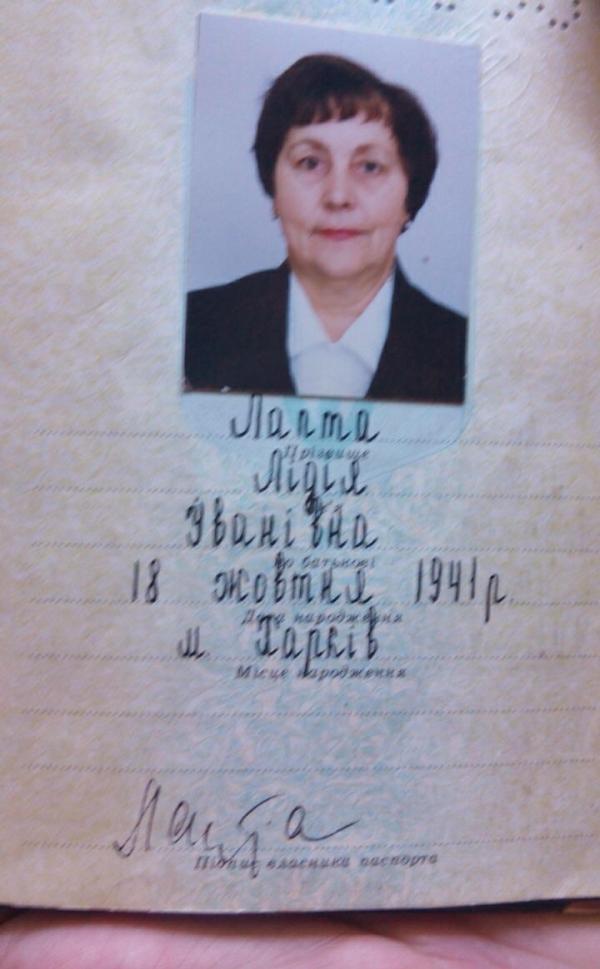 Лапта
Прізвище
Лідія
Іванівна
по батькові
18 жовтня 1941 р.
Дата народження
м. Харків
Місце народження
Лапта
Підпис власника паспорта